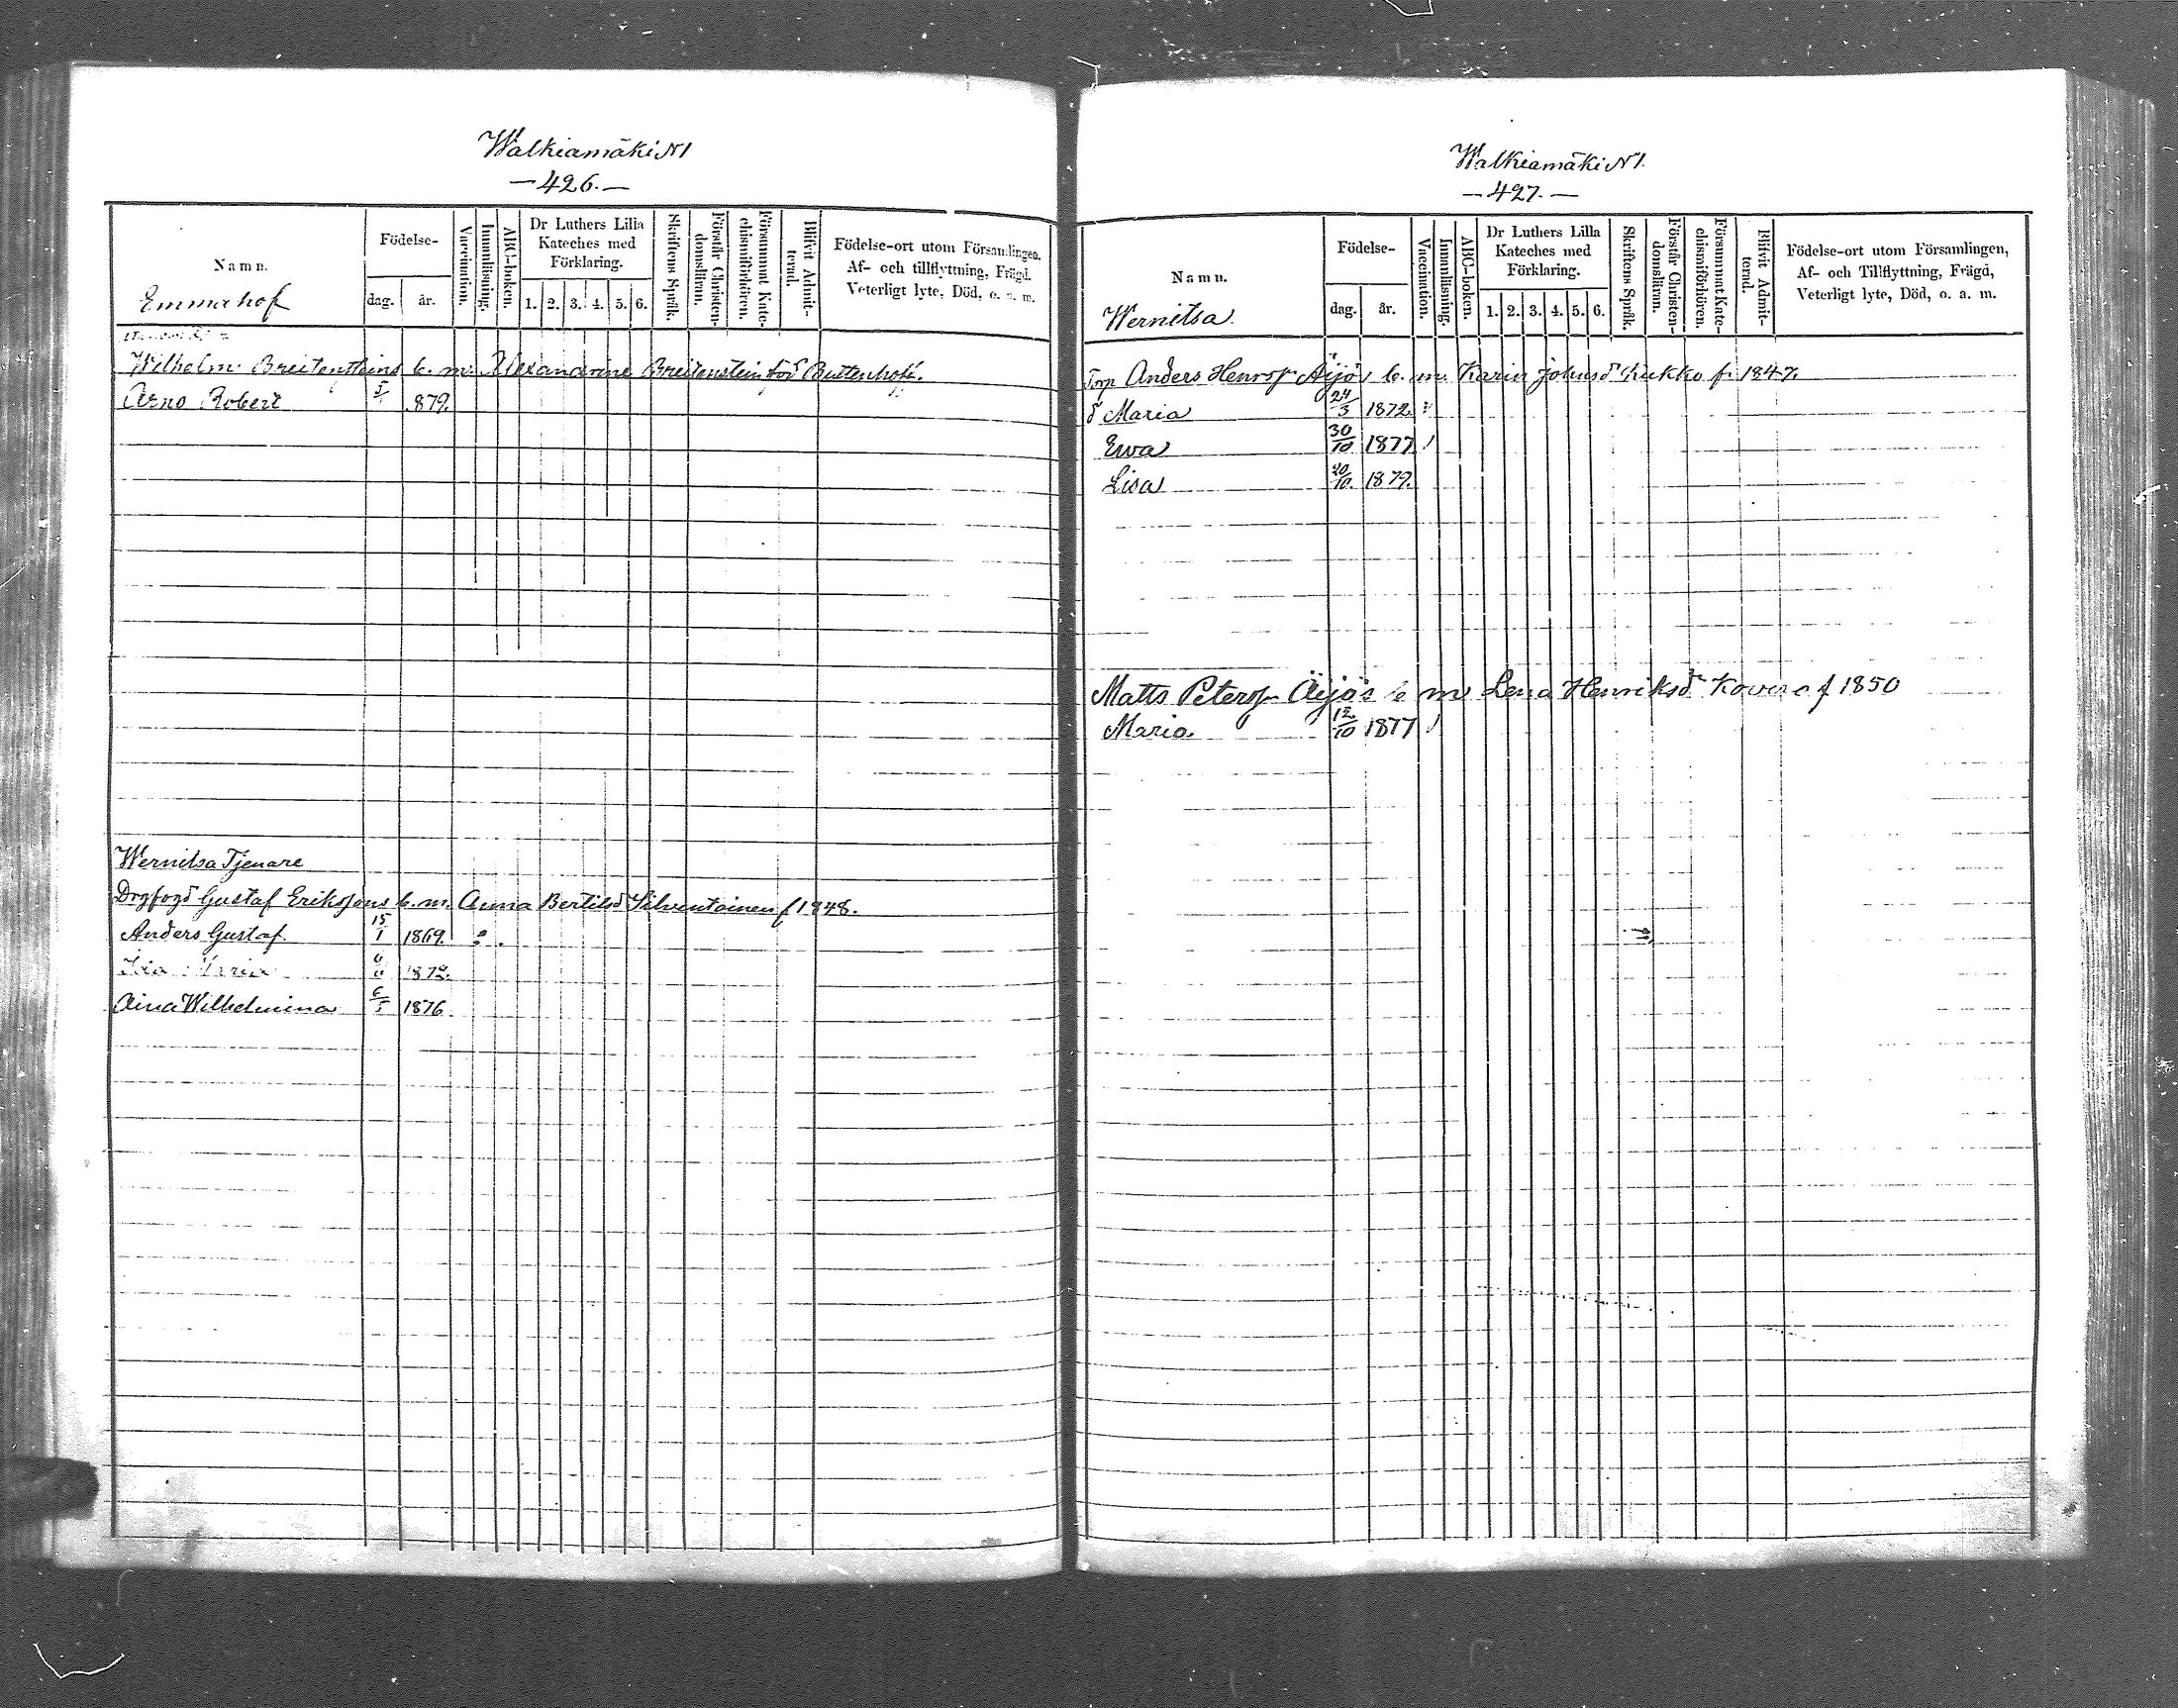 Walkiamäki N1
— 426. —
Namn.
Emmahof
Födelse-
dag.
år.
Vaccination.
Innanläsning.
ABC-boken.
Dr Luthers Lilla
Kateches med
Förklaring.
1. 2. 3. 4. 5. 6.
Skriftens Språk.
Förstår Christen-
domsläran.
Försummat Kate-
chismiförhören.
Blifvit Admit-
terad.
Födelse-ort utom Församlingen,
Af- och tillflyttning, Frägd,
Veterligt lyte, Död, o. a. m.
Wilhelm Breitensteins b. m. Alexandrine Breitenstein född Buttenhoff.
Arno Robert 879.
Wernitsa Tjenare
Drgfogd Gustaf Erikssons b. m. Anna Bertilsd Silventoinen f 1848.
Anders Gustaf 15/1 1869.
Maria 1872.
Aina Wilhelmina 6/5 1876
Walkiamäki N1.
— 427. —
Namn.
Wernitsa.
Födelse-
dag.
år.
Vaccination.
Innanläsning.
ABC-boken.
Dr Luthers Lilla
Kateches med
Förklaring.
1. 2. 3. 4. 5. 6.
Skriftens Språk.
Förstår Christen-
domsläran.
Försummat Kate-
chismiförhören.
Blifvit Admit-
terad.
Födelse-ort utom Församlingen,
Af- och Tillflyttning, Frägd,
Veterligt lyte, Död, o. a. m.
Torp Anders Henrsp Äijös b. m. Karin Johnsd Kukko f. 1847.
d Maria 24/3 1872.
Ewa 30/10 1877
Lisa 20/10. 1879.
Matts Petersp Äijös b m Lena Henriksd f 1850
Maria 12/10 1877